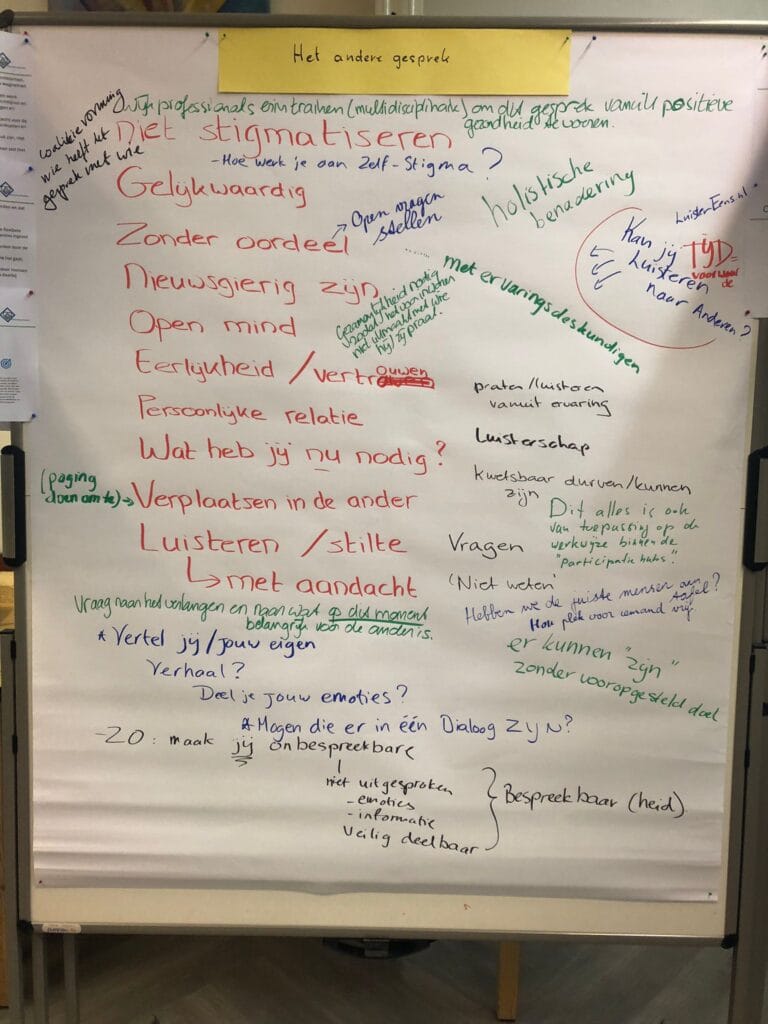 Het andere gesprek
professionals erin trainen (multidisciplinair) om dit gesprek vanuit positieve
gezondheid te voeren.
coalitievorming
wie heeft het
gesprek met wie
niet stigmatiseren
- Hoe werk je aan Zelf-Stigma?
Gelijkwaardig
holistische
benadering
Zonder oordeel
Open vragen
stellen
LuisterEens.nl
Kan jij
Luisteren
naar Anderen?
TIJD=
voorwaar
de
Nieuwsgierig zijn
met ervaringsdeskundigen
Open mind
niet uitmaakt met wie
hij/zij praat.
Eerlijkheid / vertrouwen
praten/luisteren
vanuit ervaring
Persoonlijke relatie
Luisterschap
Wat heb jij nu nodig?
Kwetsbaar durven/kunnen
zijn
Verplaatsen in de ander
Dit alles is ook
van toepassing op de
werkwijze binnen de
"Participatie hubs".
Luisteren / stilte
Vragen
met aandacht
'Niet weten'
Hebben we de juiste mensen aan
tafel?
Hou plek voor iemand vrij
Vraag naar het verlangen en naar wat op dit moment
belangrijk voor de ander is.
er kunnen "zijn"
zonder vooropgesteld doel
* Vertel jij/jouw eigen
Verhaal?
Deel je jouw emoties?
* Mogen die er in één Dialoog ZIJN?
- ZO: maak jij onbespreekbare
niet uitgesproken
- emoties
- informatie
Veilig deelbaar
Bespreekbaar (heid)